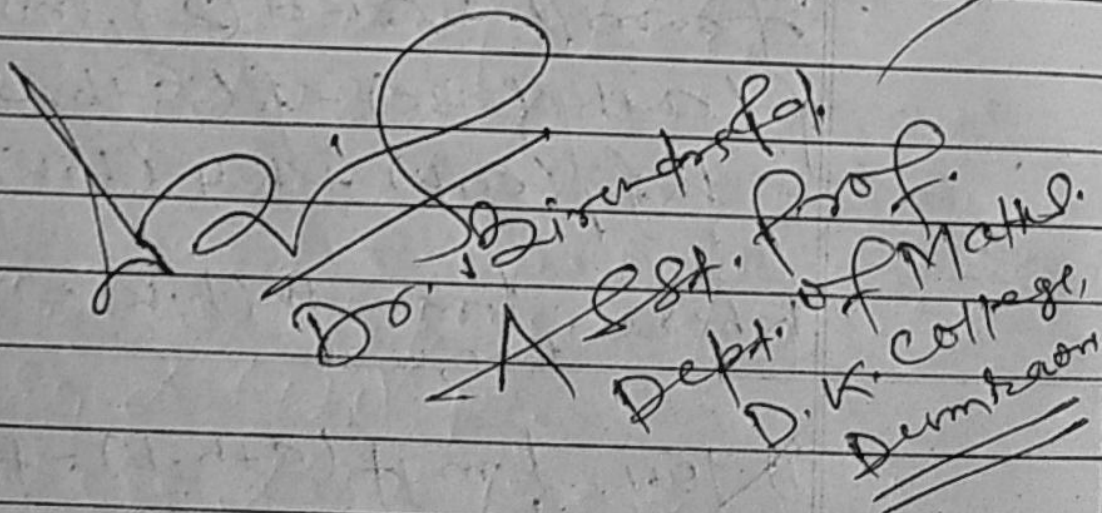 Dr. Birendra
Asst. Prof.
Dept. of Maths.
D. K. College,
Dumraon